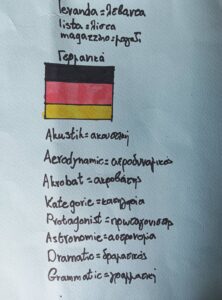 levanda = λεβάντα
lista = λίστα
magazzino = μαγαζί
Γερμανικά
Akustik = ακουστική
Aerodynamic = αεροδυναμικός
Akrobat = ακροβάτης
Kategorie = κατηγορία
Protagonist = πρωταγωνιστής
Astronomie = αστρονομία
Dramatic = δραματικός
Grammatic = γραμματική